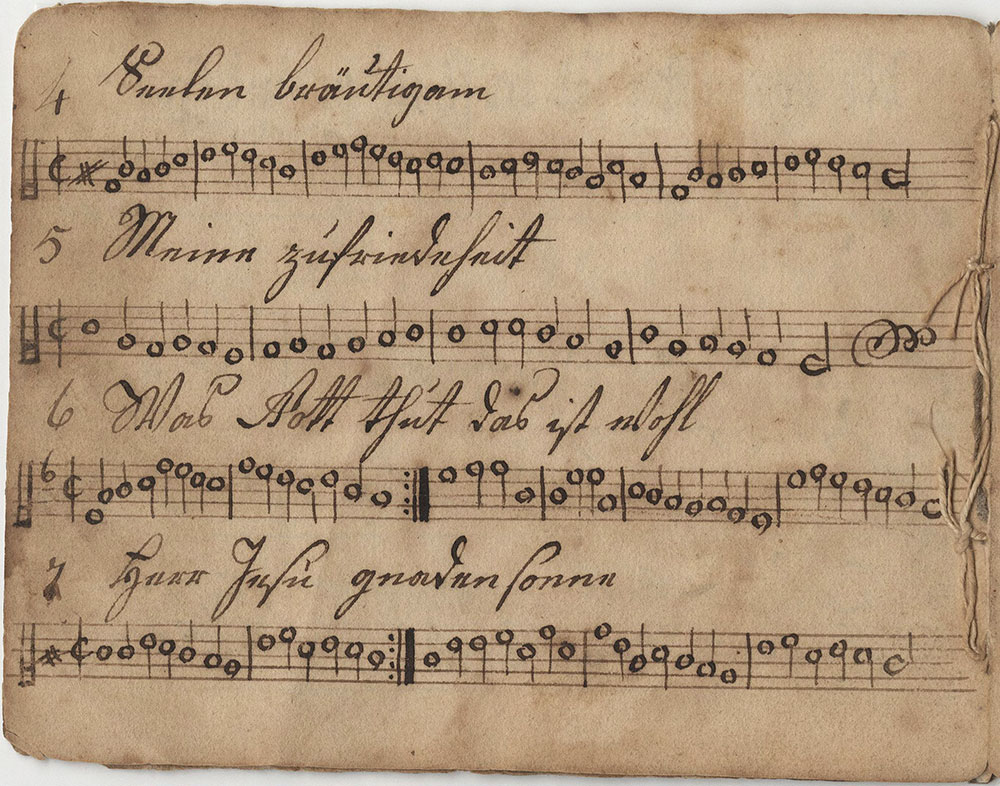 4 Seelen bräutigam
5 Meine zufriedeheit
6 Was Gott thut das ist wohl
7 Herr Jesu gnaden sonne